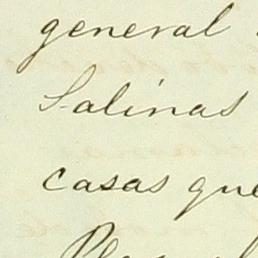 general
Salinas
casas que